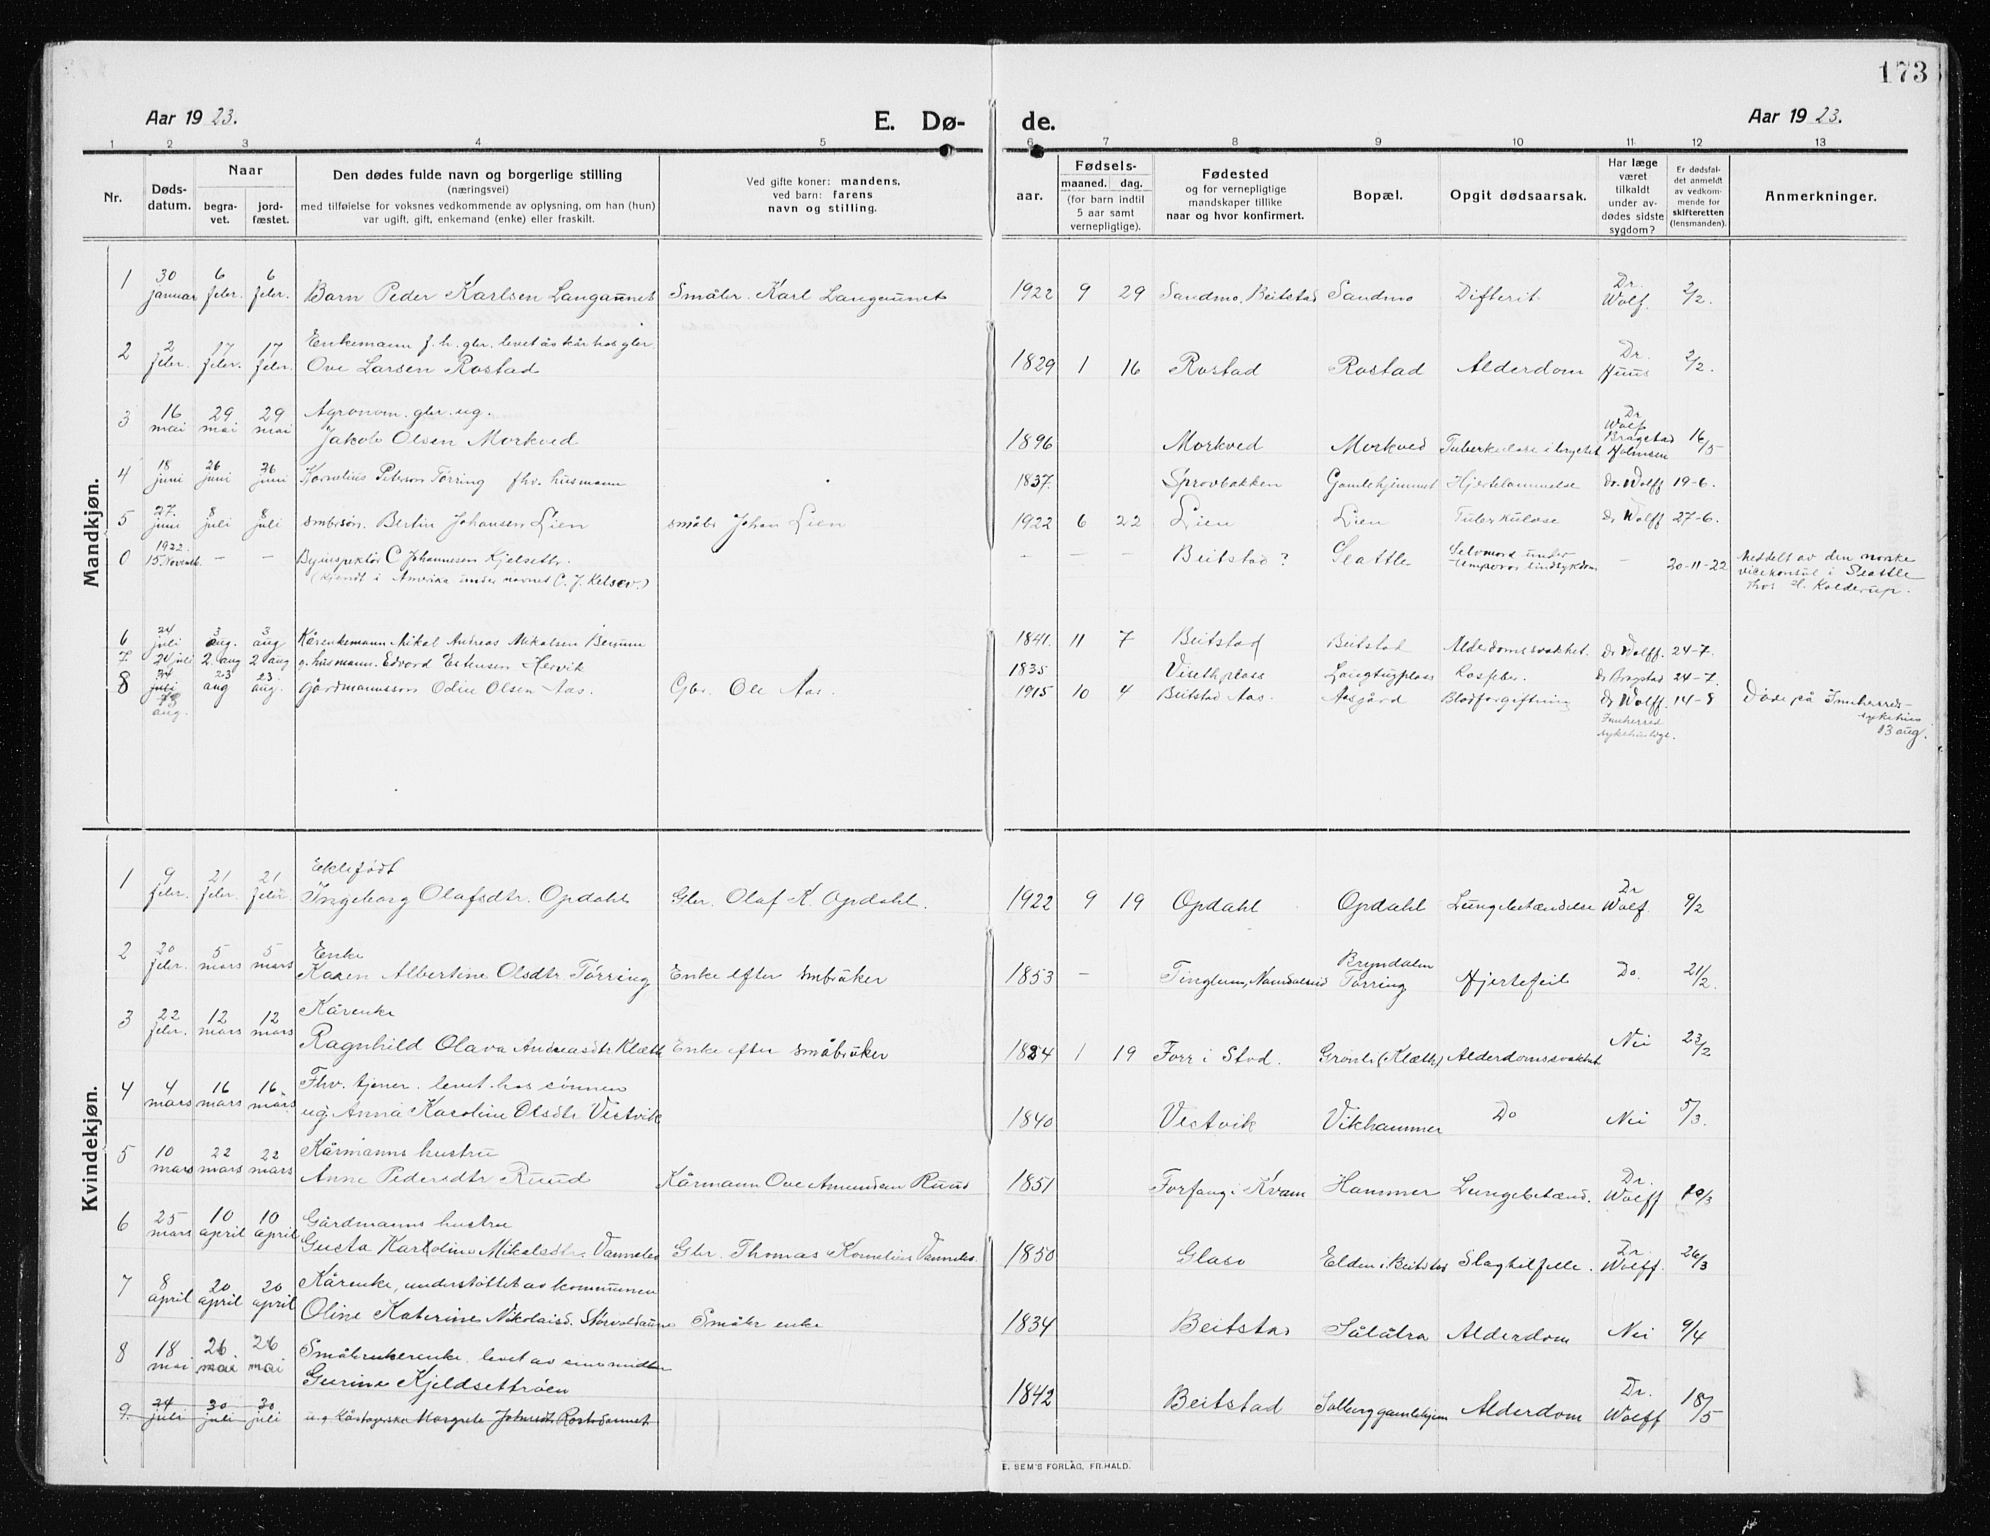 173
Aar 1923.
E. Dø-
de.
Aar 1923.
1 2 3 4 5 6 7 8 9 10 11 12 13
Nr.
Døds-
datum.
Naar
begra-
vet.
jord-
fæstet.
Den dødes fulde navn og borgerlige stilling
(næringsvei)
med tilføielse for voksnes vedkommende av oplysning, om han (hun)
var ugift, gift, enkemand (enke) eller fraskilt.
Ved gifte koner: mandens,
ved barn: farens
navn og stilling.
aar.
Fødsels-
maaned. dag.
(for barn indtil
5 aar samt
vernepligtige).
Fødested
og for vernepligtige
mandskaper tillike
naar og hvor konfirmert.
Bopæl.
Opgit dødsaarsak.
Har læge
været
tilkaldt
under av-
dødes sidste
sygdom?
Er dødsfal-
det anmeldt
av vedkom-
mende for
skifteretten
(lensmanden).
Anmerkninger.
Mandkjøn.
1 30 januar 6 febr. 6 febr. Barn Peder Karlsen Langaunet Småbr. Karl Langaunet 1922 9 29 Sandmo, Beitstad Sandmo Difterit Dr. Wolf. 2/2.
Enkemann f.h. gbr. levet ås kår hos gbr.
2 2 febr. 17 febr. 17 febr. Ove Larsen Rostad 1829 1 16 Rostad Rostad Alderdom Dr. Huus 2/2.
Agronom. gbr. ug.
3 16 mai 29 mai 29 mai Jakob Olsen Morkved 1896 Morkved Morkved Tuberkulose i brystet Dr. Wolf Bragstad Holmsen 16/5
4 18 juni 26 juni 26 juni Kornelius Peterson Tørring fhv. husmann 1837. Sprovbakken Gamlehjemmet Hjertelammelse Dr. Wolff 19-6.
5 27. juni 8 juli 8 juli smbrsøn. Bertin Johansen Lien småbr Johan Lien 1922 6 22 Lien Lien Tuberkulose Dr Wolff 27-6.
0 1922. 15. Novemb. — — Byinspektør C Johannesen Kjelsettr. — — — Beitstad? Seattle Selvmord under temporær sindsykdom — 20-11-22 Meddelt av den norske
(kjendt i Amerika under navnet C. J. Kelsev.) vicekonsul i Seattle
Thos H. Kolderup.
6 24 juli 3 aug. 3 aug Kårenkemann Nikol Andreas Mikalsen Benum 1841. 11 7 Beitstad Beitstad Alderdomssvakhet. Dr Wolff. 24-7.
7 24 juli 2. aug 2 aug g. husmann. Edvard Estensen Hervik 1835 Viseth plass Langtugplass Rospber. Dr Bragstad 24-7.
8 juli 13 aug. 23 aug 23 aug. Gårdmannsson Odin Olsen Aas. Gbr. Ole Aas. 1915 10 4 Beitstad Aas. Aasgård Blodforgiftning Dr Wolff. 14-8 Døde på Innherred-
Innherred sykehuslæge. sykehus
13 aug.
Kvindekjøn.
Ektefødt
1 9 febr. 21 febr. 21 febr. Ingeborg Olafsdtr. Opdahl Gbr. Olaf K. Opdahl. 1922 9 19 Opdahl Opdahl Lungebetændelse Dr Wolf. 9/2
Enke
2 20 febr. 5 mars 5 mars Karen Albertine Olsdtr. Tørring Enke efter smbruker 1853 — Tinglum, Namdalseid Bryndalen Tørring Hjertefeil Do. 21/2.
Kårenke
3 22 febr. 12 mars 12 mars Ragnhild Olava Andreasdtr Klæth Enke efter småbruker 1834 1 19 Forr i Stod. Grønli (Klæth) Alderdomssvakhet Nei 23/2
Fhv. tjener. levet hos sønnen
4 4 mars 16 mars 16 mars ug. Anna Karoline Olsdtr Vestvik 1840 Vestvik Vikhammer Do Nei 5/3.
Kårmanns hustru
5 10 mars 22 mars 22 mars Anne Pedersdtr Ruud Kårmann Ove Amundsen Ruud 1851 Forfang i Kvam Hammer Lungebetænd. Dr. Wolff 10/3
Gårdmanns hustru
6 25 mars 10 april 10 april Gusta Karoline Mikalsdtr Vannebo Gbr. Thomas Kornelius Vannebo. 1850 Glaso Elden i Beitstad Slagtilfelle. Dr. Wolff. 26/3
Kårenke, understøttet av kommunen
7 8 april 20 april 20 april Oline Katerine Nikolaisd. Storvoldaunet Småbr enke 1834 Beitstad Sålåtra Alderdom Nei 9/4
Småbrukerenke. levet av sine midler
8 18 mai 26 mai 26 mai Gurine Kjeldsettrøen 1842 Beitstad Solberg gamlehjem Alderdom Dr. Wolff 18/5
9. 24 juli 30 juli 30 juli u.g. Margrete
E. SEM'S FORLAG, FR.HALD.